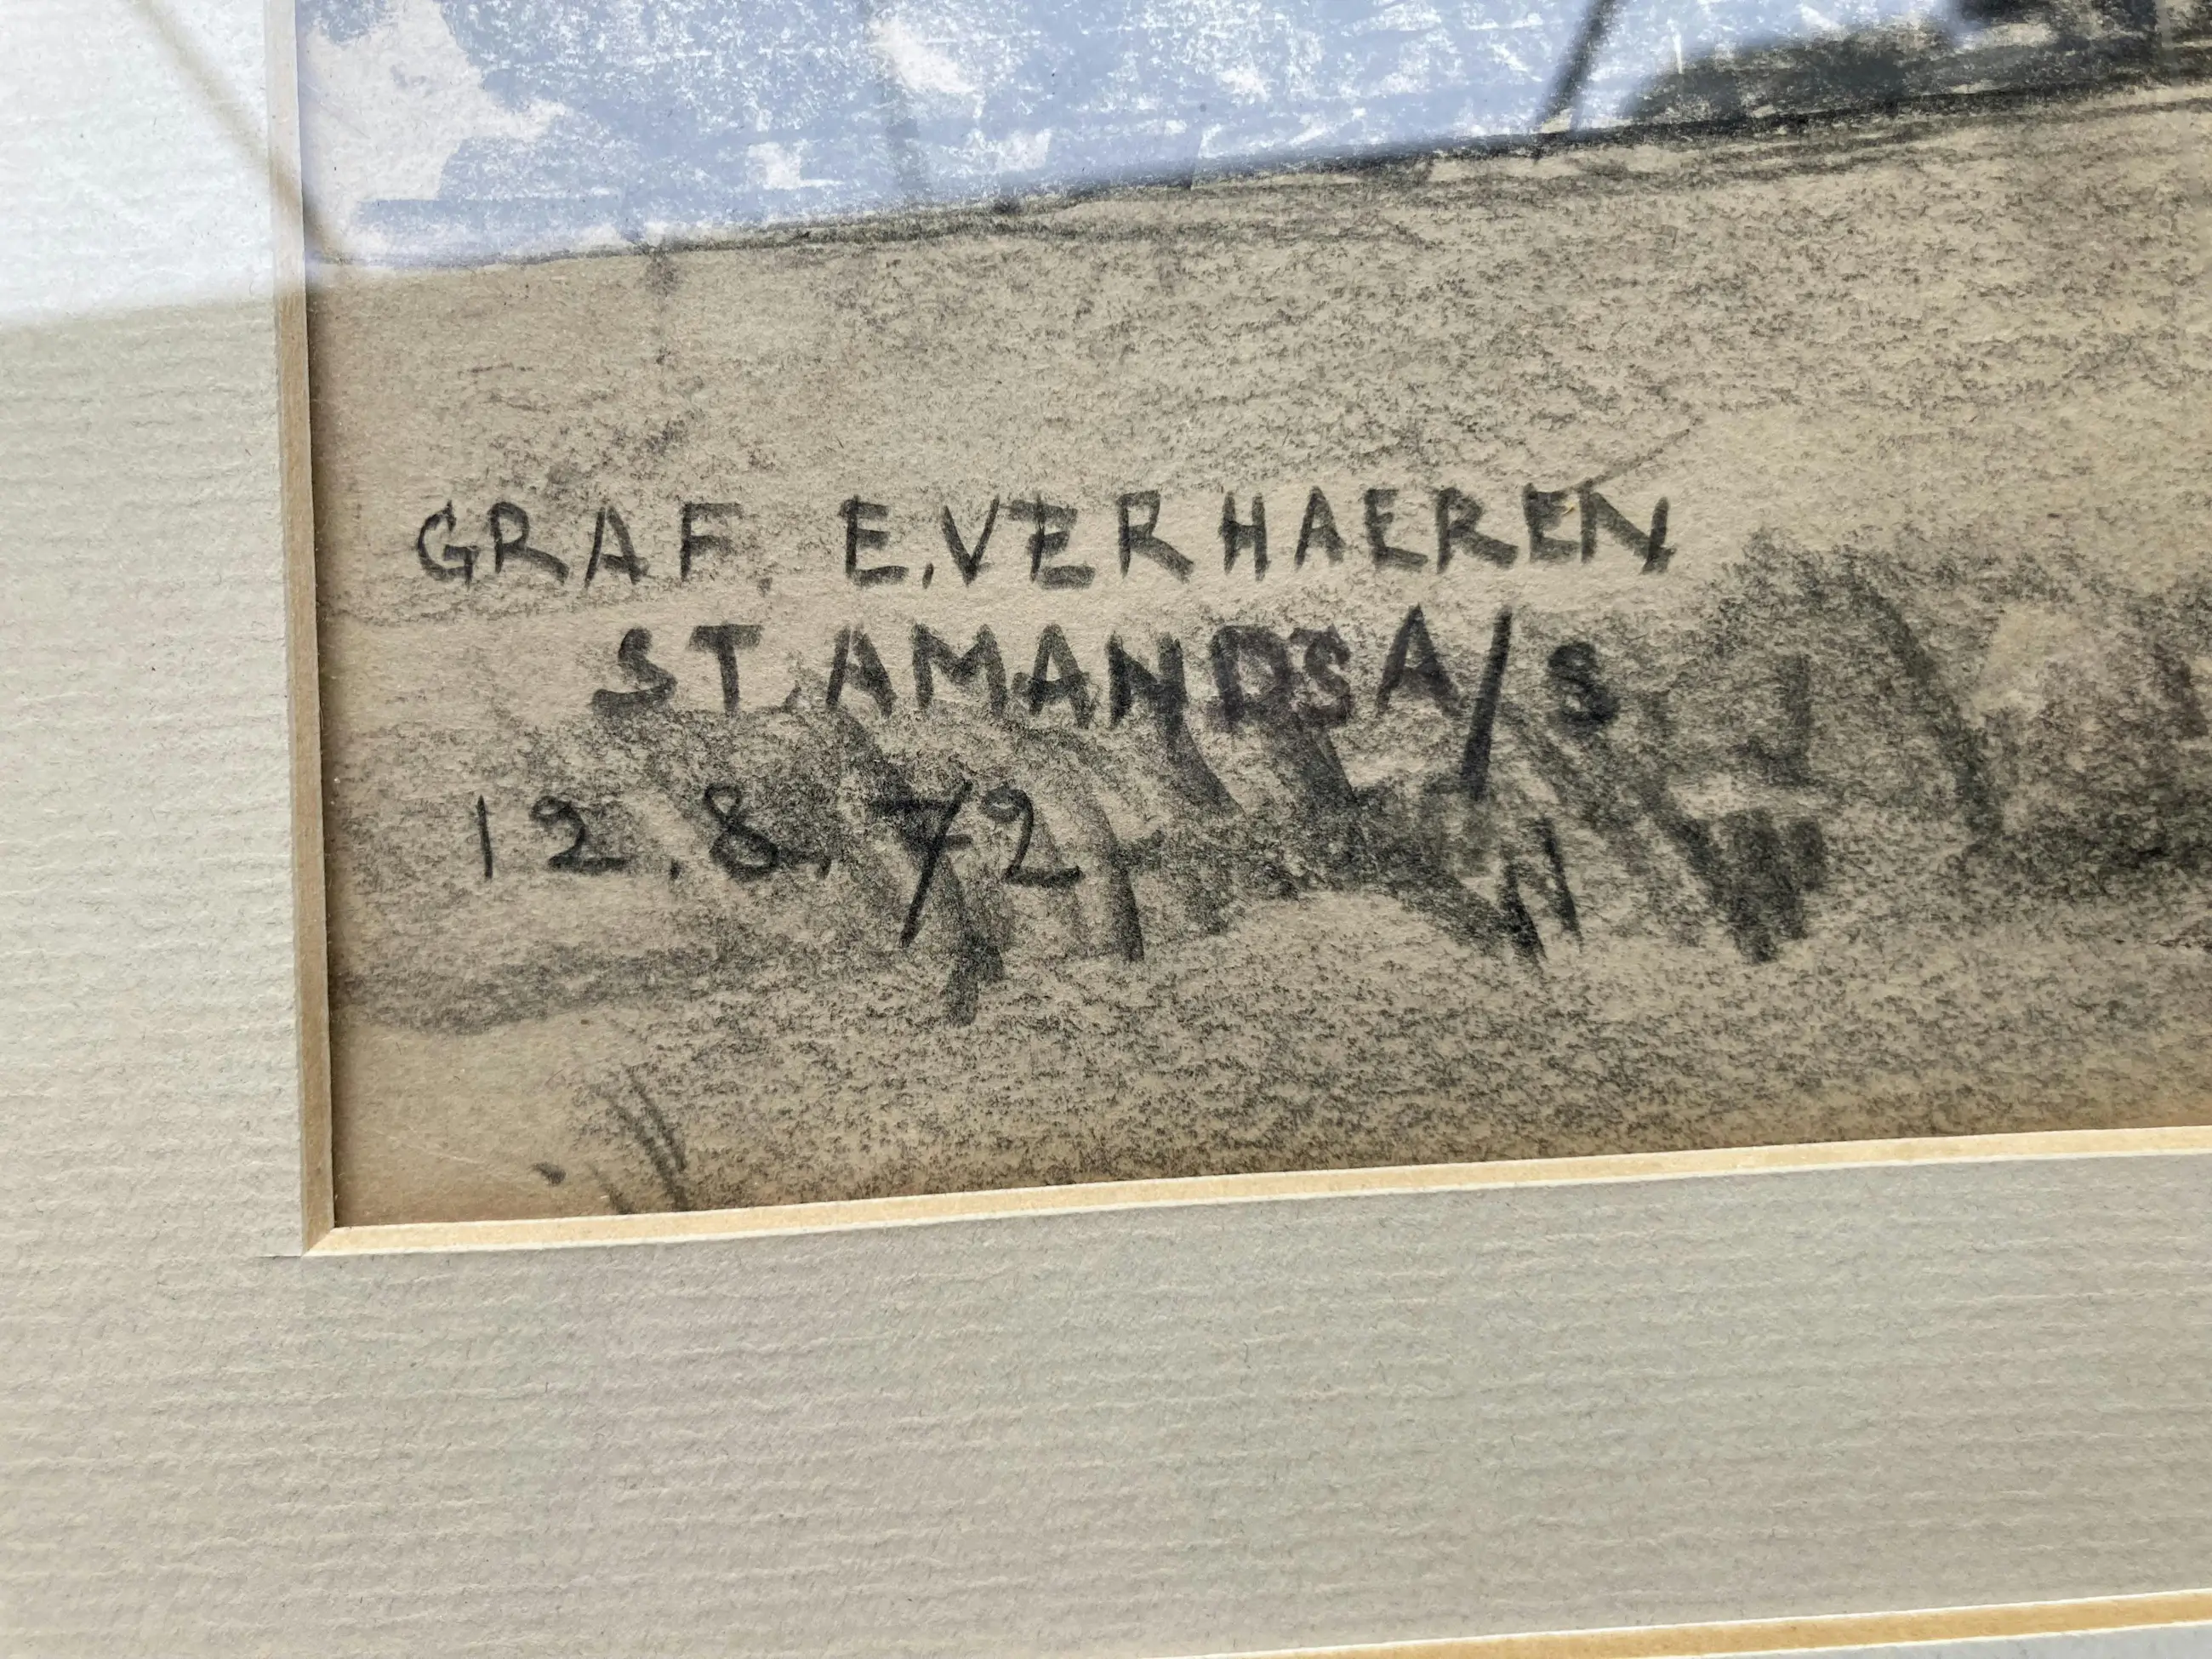 GRAF. E.VERHAEREN
ST.AMANDS A/S
12.8.72